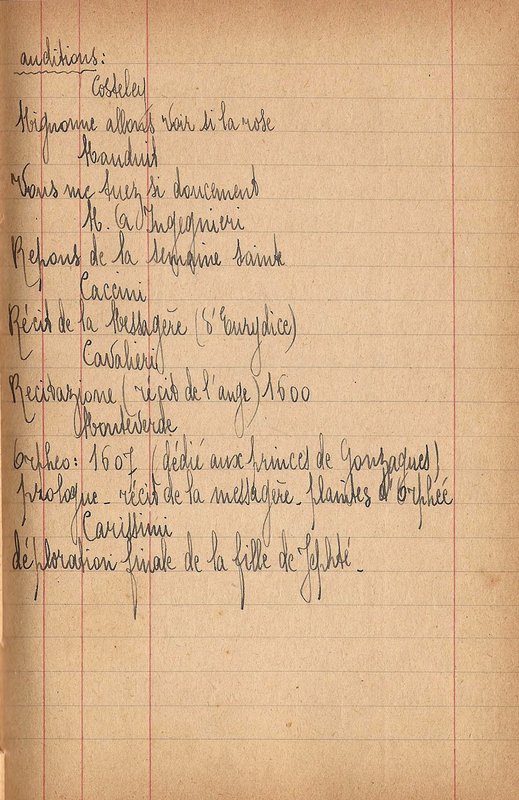 auditions:
Costeley
Mignonne allons voir si la rose
Mauduit
Vous me tuez si doucement
M. A Ingegnieri
Repons de la semaine sainte
Caccini
Récit de la Messagère (d'Eurydice)
Cavalieri
Recitazione (récit de l'ange) 1600
Monteverde
Orpheo: 1607 (dédié aux princes de Gonzagues)
prologue - récit de la messagère - plaintes d'Orphée
Carissimi
déploration finale de la fille de Jephté -